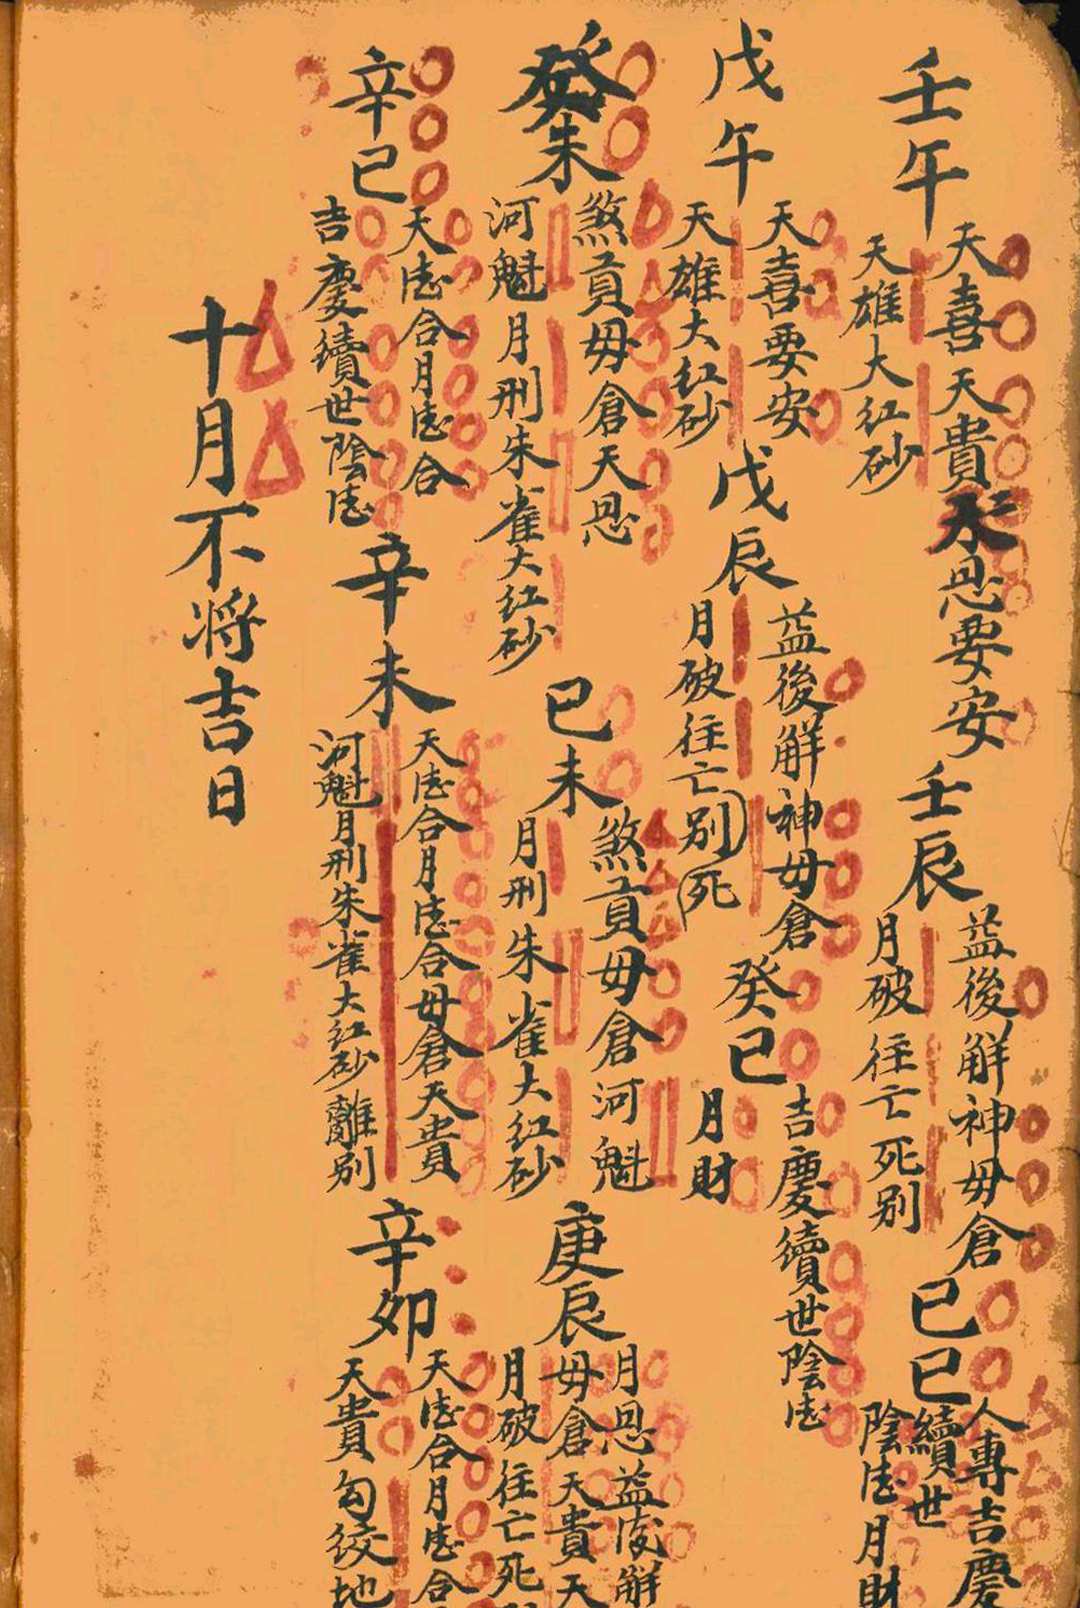 壬午
天喜天貴
恩要安
天雄大红砂
壬辰
益後解神毋倉
月破往亡死别
己巳
人專吉慶
續世
陰徳月財
戊午
天喜要安
天雄大红砂
戊辰
益後解神毋倉
月破往亡别死
癸巳
吉慶續世陰徳
月財
癸未
煞貢毋倉天恩
河魁月刑朱雀大红砂
己未
煞貢毋倉河魁
月刑朱雀大红砂
庚辰
月恩益後解
毋倉天貴天
月破往亡死
辛巳
天徳合月徳合
吉慶續世陰徳
辛未
天徳合月徳合毋倉天貴
河魁月刑朱雀大红砂離别
辛卯
天徳合月徳合
天貴勾绞地
十月不将吉日